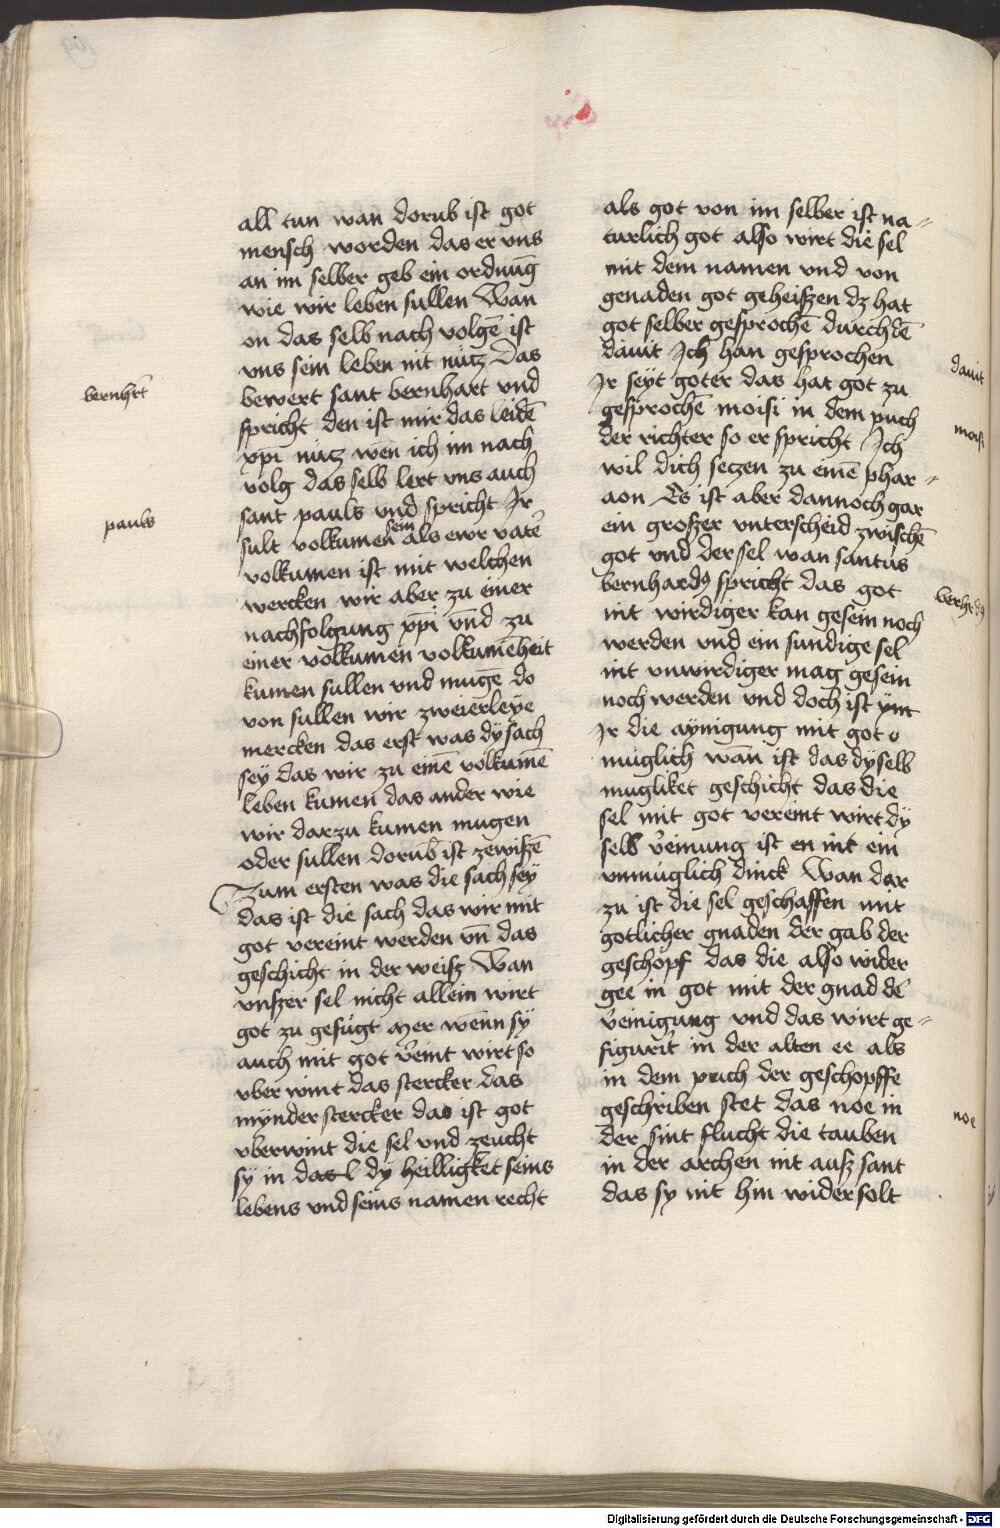 all tun wan dorub ist got
mensch worden das er vns
an im selber geb ein ordnūg
wie wir leben sullen Wan
on das selb nach volgē ist
vns sein leben nit nücz Das
bewert sant bernhart vnd
spricht den ist mir das leidē
xp̄i nücz wen ich im nach
volg das selb lert vns auch
sant pauls vnd spricht Ir
sult volkumen sein als ewr vatē
volkumen ist mit welchen
wercken wir aber zu einer
nachfolgung xp̄i vnd zu
einer volkumen volkumēheit
kumen sullen vnd mugē do
von sullen wir zweierleye
mercken das erst was dÿ sach
seÿ das wir zu einē volkumē
leben kumen das ander wie
wir darzu kumen mugen
oder sullen dorub ist zewiſzē
Zum ersten was die sach seÿ
das ist die sach das wir mit
got vereint werden vn̄ das
geschicht in der weisz Wan
vnszer sel nicht allein wirt
got zu gefügt mer wenn sÿ
auch mit got v̄eint wirt so
vber wint das stercker das
mÿnder stercker das ist got
vberwint die sel vnd zeucht
sÿ in das l dÿ heilligket seins
lebens vnd seins namen recht
bernhrt
pauls
als got von im selber ist na⸗
turlich got also wirt die sel
mit dem namen vnd von
genaden got geheiszen dz hat
got selber gesprochē durch dē
dauit Ich han gesprochen
Ir seÿt goter das hat got zu
gesprochē moisi in dem puch
der richter so er spricht Ich
wil dich seczen zu einē phar⸗
aon Es ist aber dannoch gar
ein groszer vnterscheid zwischē
got vnd der sel wan santus
bernhardꝰ spricht das got
nit wirdiger kan gesein noch
werden vnd ein sundige sel
nit vnwirdiger mag gesein
noch werden vnd doch ist ÿm
Ir die aÿnigung mit got
muglich wan̄ ist das dÿselb
mugliket geschicht das die
sel mit got vereint wirt dÿ
selb v̄einung ist en nit ein
vnmuglich dinck Wan dar
zu ist die sel geschaffen mit
gotlicher gnaden der gab der
geschopf das die also wider
gee in got mit der gnad dē
v̄einigung vnd das wirt ge⸗
figurit in der alten ee als
in dem puch der geschopffe
geschriben stet das noe in
der sint flucht die tauben
in der archen nit ausz sant
das sy nit hin wider solt
dauit
moisi
noe
Digitalisierung gefördert durch die Deutsche Forschungsgemeinschaft - DFG